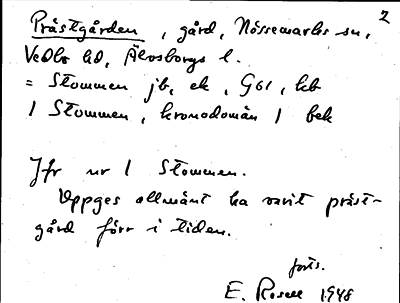 2
Prästgården, gård, Nössemarks sn,
Vedbo hd, Älvsborgs l.
= Stommen jb, ek, G61, kb
1 Stommen, kronodomän 1 bek
Jfr nr 1 Stommen.
Uppges allmänt ha varit präst-
gård förr i tiden.
forts.
E. Rosell 1948